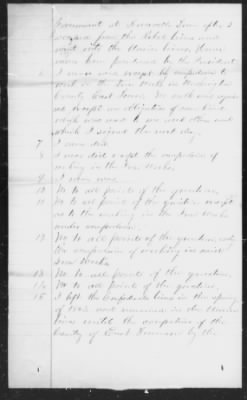 Government at Knoxville Tenn after I
escaped from the Rebel lines and
went into the Union lines, Have
never been pardoned by the President.
6 I never was except by compulsion to
work in the Iron Works in Washington
County East Tenn. No oath was given
me except an obligation of some kind
which was read to me and others and
which I signed the next day.
7 I never did.
8 I never did except the compulsion of
working in the Iron Works.
9 I never was.
10 No to all points of the question.
11 No to all points of the question except
as to the working in the Iron Works
under compulsion.
12 No to all points of the question, except
the compulsion of working in said
Iron Works.
13 No to all points of the question.
14 No to all points of the question.
15 I left the Confederate lines in the spring
of and remained in the Union
lines until the occupation of the
County of East Tennessee by the